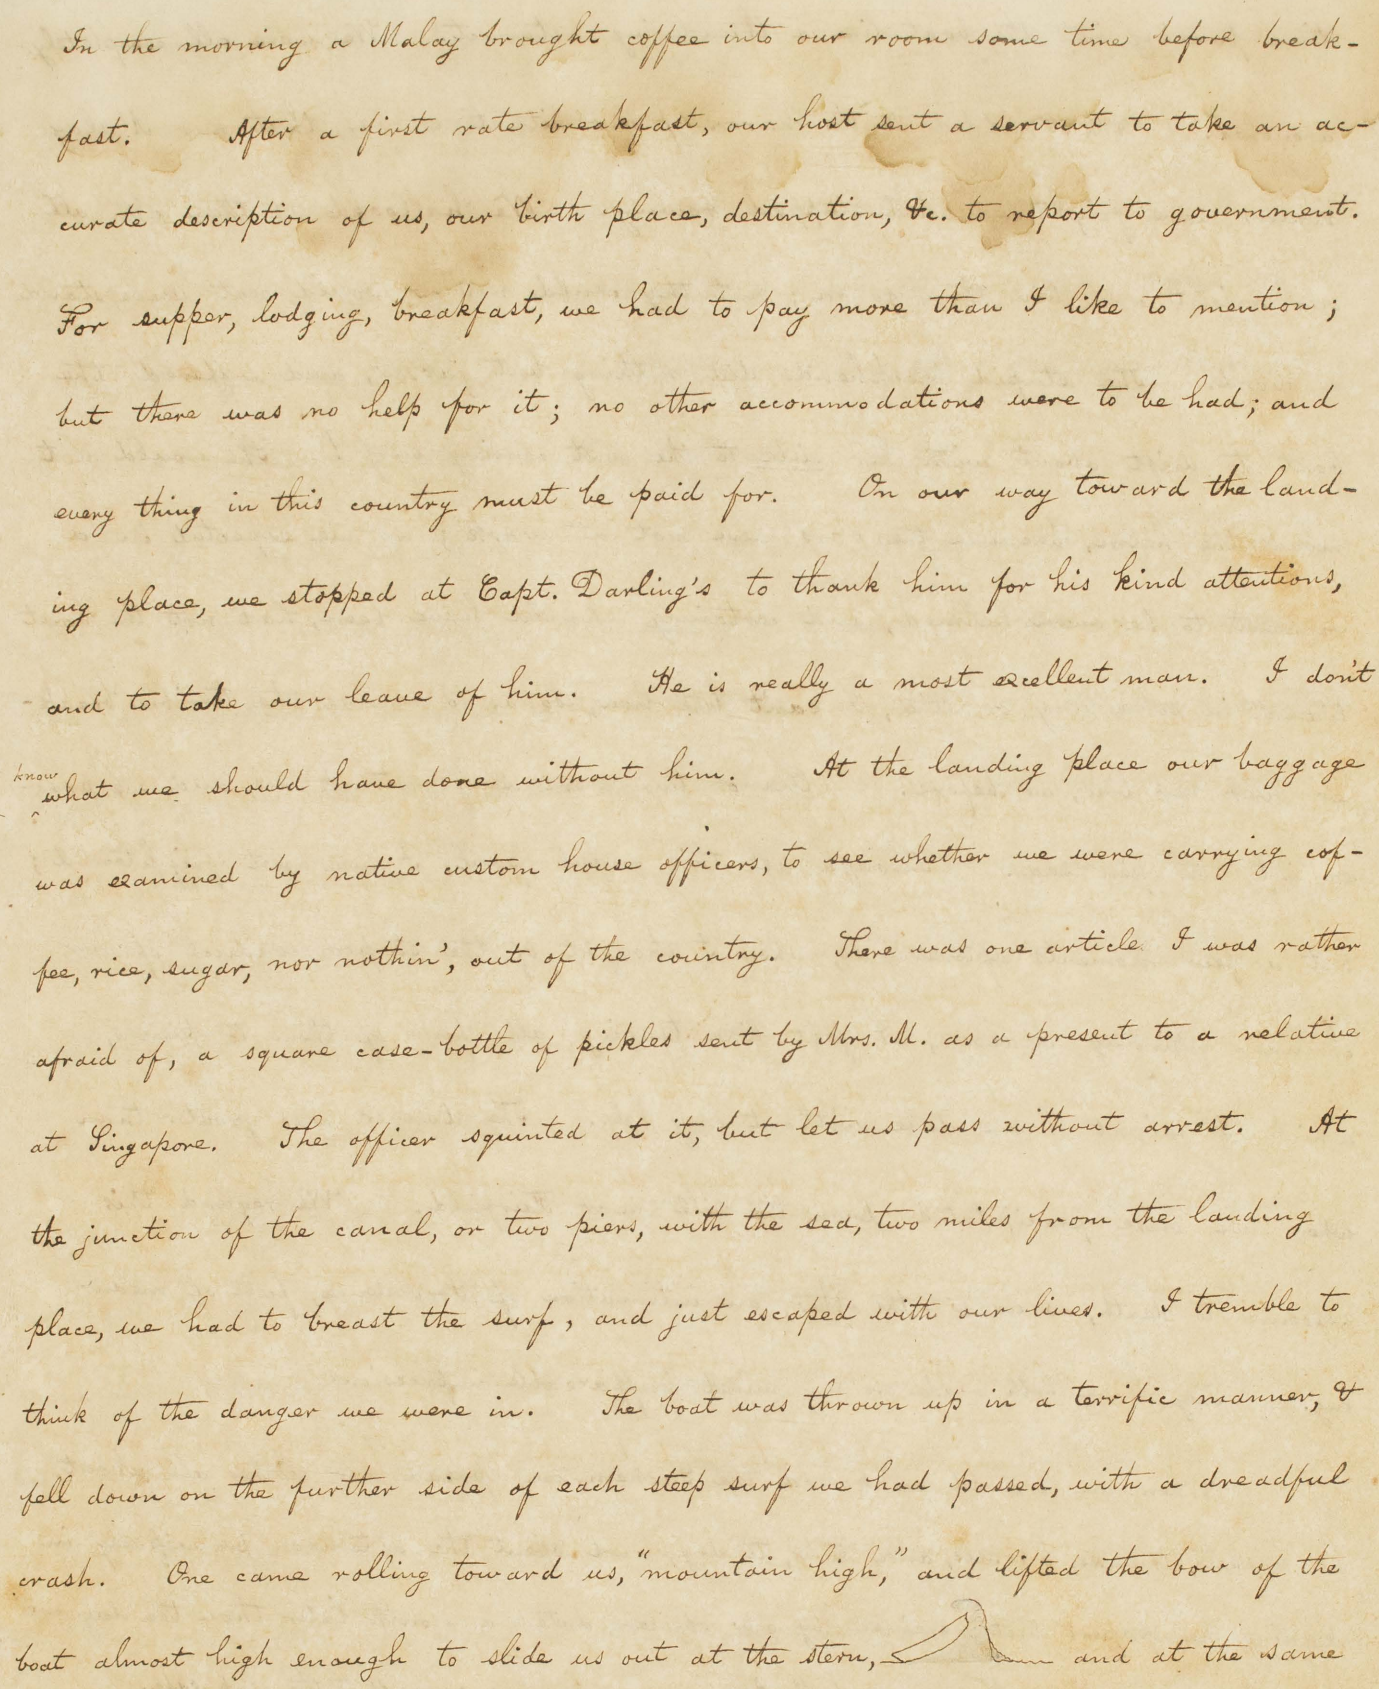 In the morning a Malay brought coffee into our room some time before break-
fast. After a first rate breakfast, our host sent a servant to take an ac-
curate description of us, our birth place, destination, &c. to report to government.
For supper, lodging, breakfast, we had to pay more than I like to mention;
but there was no help for it; no other accommodations were to be had; and
every thing in this country must be paid for. On our way toward the land-
ing place, we stopped at Capt. Darling's to thank him for his kind attentions,
and to take our leave of him. He is really a most excellent man. I don't
know
what we should have done without him. At the landing place our baggage
was examined by native custom house officers, to see whether we were carrying cof-
fee, rice, sugar, nor nothin', out of the country. There was one article I was rather
afraid of, a square case-bottle of pickles sent by Mrs. M. as a present to a relative
at Singapore. The officer squinted at it, but let us pass without arrest. At
the junction of the canal, or two piers, with the sea, two miles from the landing
place, we had to breast the surf, and just escaped with our lives. I tremble to
think of the danger we were in. The boat was thrown up in a terrific manner, &
fell down on the further side of each steep surf we had passed, with a dreadful
crash. One came rolling toward us, "mountain high," and lifted the bow of the
boat almost high enough to slide us out at the stern, and at the same